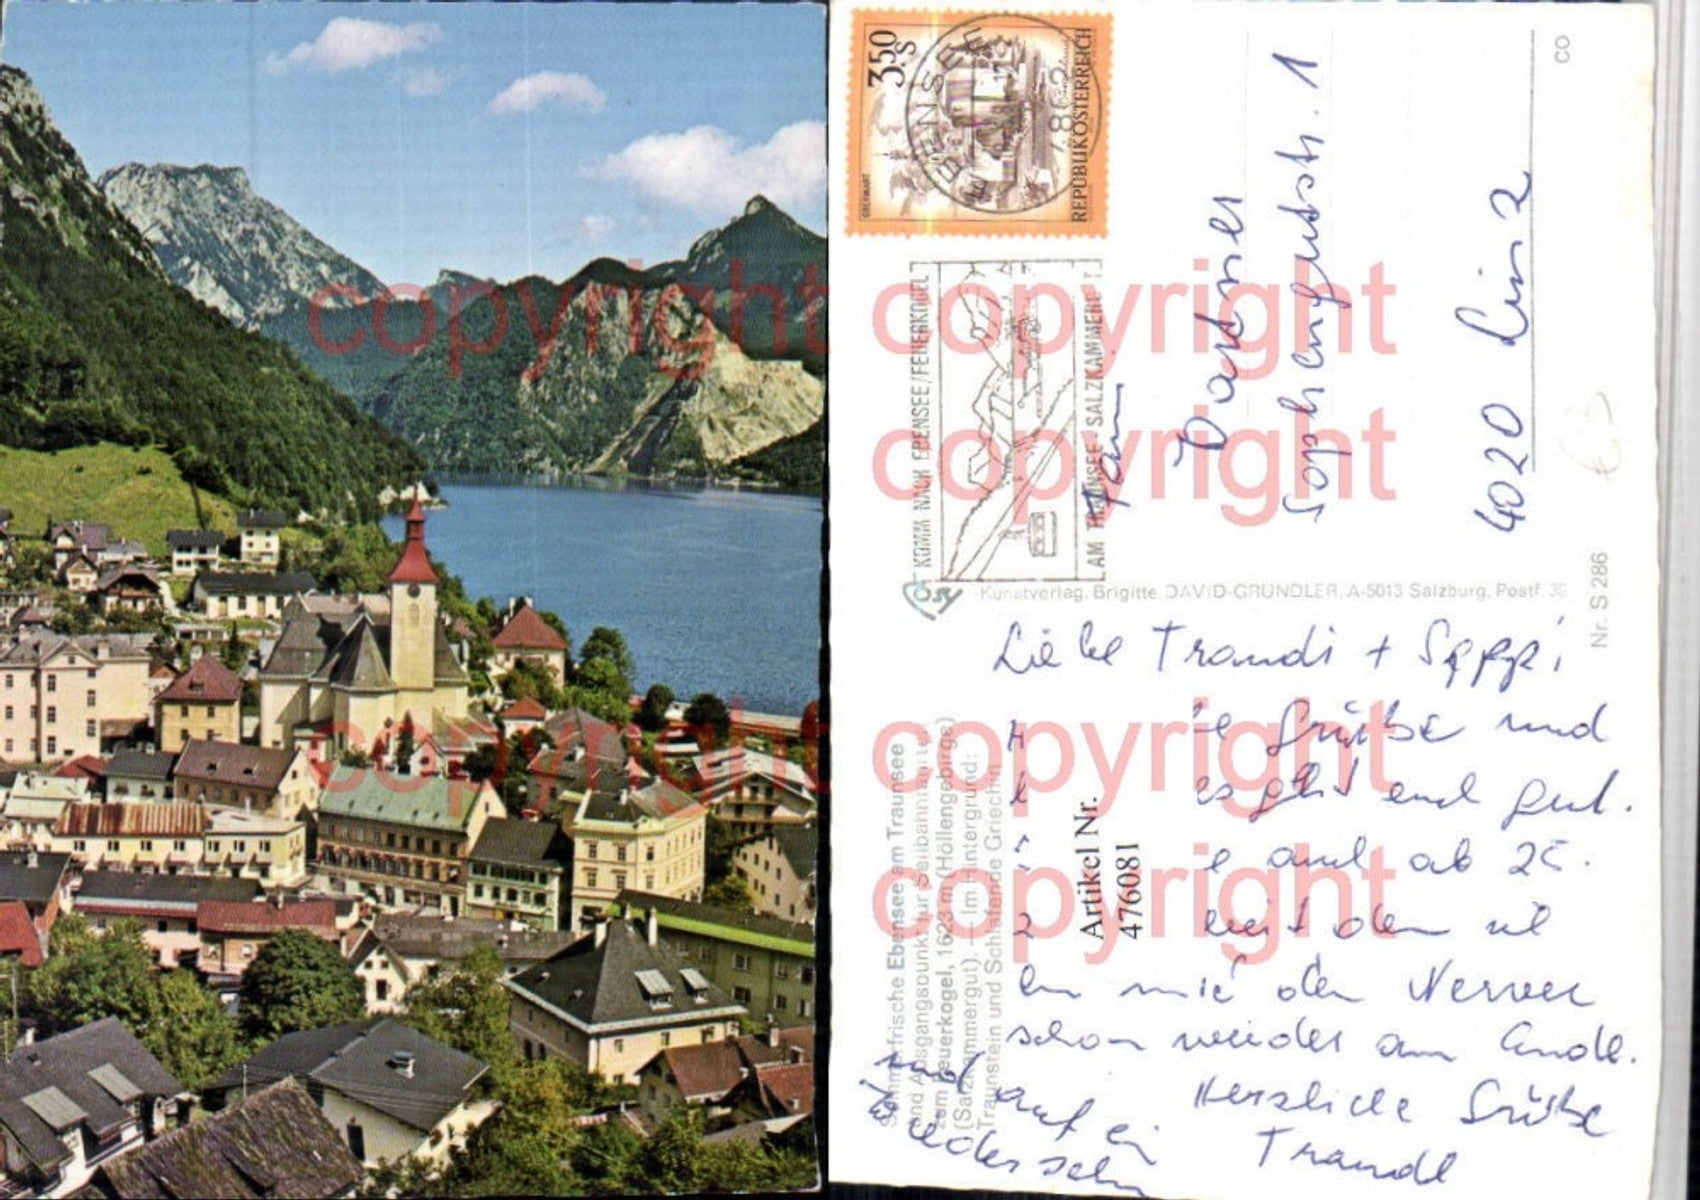 3.50 S
REPUBLIK ÖSTERREICH
OBERWART
EBENSEE
4802
KOMM NACH EBENSEE/FEUERKOGEL
AM TRAUNSEE-SALZKAMMERGUT
Fam
Sophiengutstr. 1
4020 Linz
CO
Nr. S 286
Kunstverlag. Brigitte DAVID-GRÜNDLER, A-5013 Salzburg, Postf. 35
Sommerfrische Ebensee am Traunsee
und Ausgangspunkt für Seilbahnfahrten
zum Feuerkogel, 1623 m (Höllengebirge)
(Salzkammergut). — Im Hintergrund:
Traunstein und Schlafende Griechin
Artikel Nr.
476081
Liebe Traudi + Seppi
Grüße und
es geht euch gut.
auch ab 25.
den
mit den Nerven
schon wieder am Ende.
Herzliche Grüße
Traudl
und auf ein
Wiedersehn
copyright copyright
copyright
copyright copyright
copyright